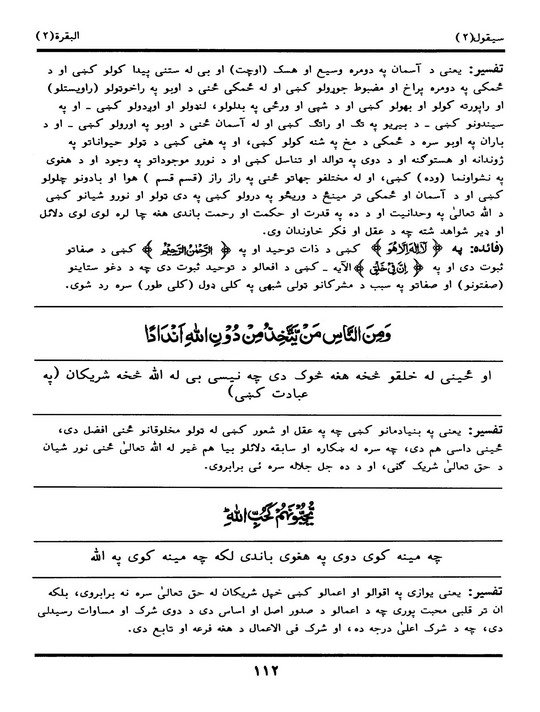 سيقول(٢)
البقرة(٢)
تفسير: يعنی د آسمان په دومره وسيع او هسک (اوچت) او بی له ستنی پيدا کولو کښی او د
ځمکی په دومره پراخ او مضبوط جوړولو کښی او له ځمکی ځنی د اوبو په راخوټولو (راويستلو)
او راپورته کولو او بهولو کښی او د شپی او ورځی په بدلولو، لنډولو او اوږدولو کښی ـ او په
سيندونو کښی ـ د بيړيو په تګ او راتګ کښی او له آسمان ځنی د اوبو په اورولو کښی ـ او د
باران په اوبو سره د ځمکی د مخ په شنه کولو کښی، او په هغی کښی د ټولو حيواناتو په
ژوندانه او هستوګنه او د دوی په توالد او تناسل کښی او د نورو موجوداتو په وجود او د هغوی
په نشوانما (وده) کښی، او له مختلفو جهاتو ځنی په راز راز (قسم قسم ) هوا او بادونو چلولو
کښی او د آسمان او ځمکی تر مينځ د وريځو په درولو کښی په دی ټولو او نورو شيانو کښی
د الله تعالیٰ په وحدانيت او د ده په قدرت او حکمت او رحمت باندی هغه چا لره لوی لوی دلائل
او ډير شواهد شته چه د عقل او فکر خاوندان وی.
(فائده: په ﴿ لَآ اِلٰهَ اِلَّا هُوَ ﴾ کښی د ذات توحيد او په ﴿ الرَّحْمٰنُ الرَّحِيْمُ ﴾ کښی د صفاتو
ثبوت دی او په ﴿ اِنَّ فِیْ خَلْقِ ﴾ الآيه ـ کښی د افعالو د توحيد ثبوت دی چه د دغو ستاينو
(صفتونو) او صفاتو په سبب د مشرکانو ټولی شبهی په کلی ډول (کلی طور) سره رد شوی.
وَمِنَ النَّاسِ مَنْ يَّتَّخِذُ مِنْ دُوْنِ اللهِ اَنْدَادًا
او ځينی له خلقو څخه هغه څوک دی چه نيسی بی له الله څخه شريکان (په
عبادت کښی)
تفسير: يعنی په بنيادمانو کښی چه په عقل او شعور کښی له ټولو مخلوقاتو ځنی افضل دی،
ځينی داسی هم دی، چه سره له ښکاره او سابقه دلائلو بيا هم غير له الله تعالیٰ ځنی نور شيان
د حق تعالیٰ شريک ګڼی، او د ده جل جلاله سره ئی برابروی.
يُّحِبُّوْنَهُمْ كَحُبِّ اللهِ ؕ
چه مينه کوی دوی په هغوی باندی لکه چه مينه کوی په الله
تفسير: يعنی يوازی په اقوالو او اعمالو کښی خپل شريکان له حق تعالیٰ سره نه برابروی، بلکه
ان تر قلبی محبت پوری چه د اعمالو د صدور اصل او اساس دی د دوی شرک او مساوات رسيدلی
دی، چه د شرک اعلیٰ درجه ده، او شرک فی الاعمال د هغه فرعه او تابع دی.
١١٢